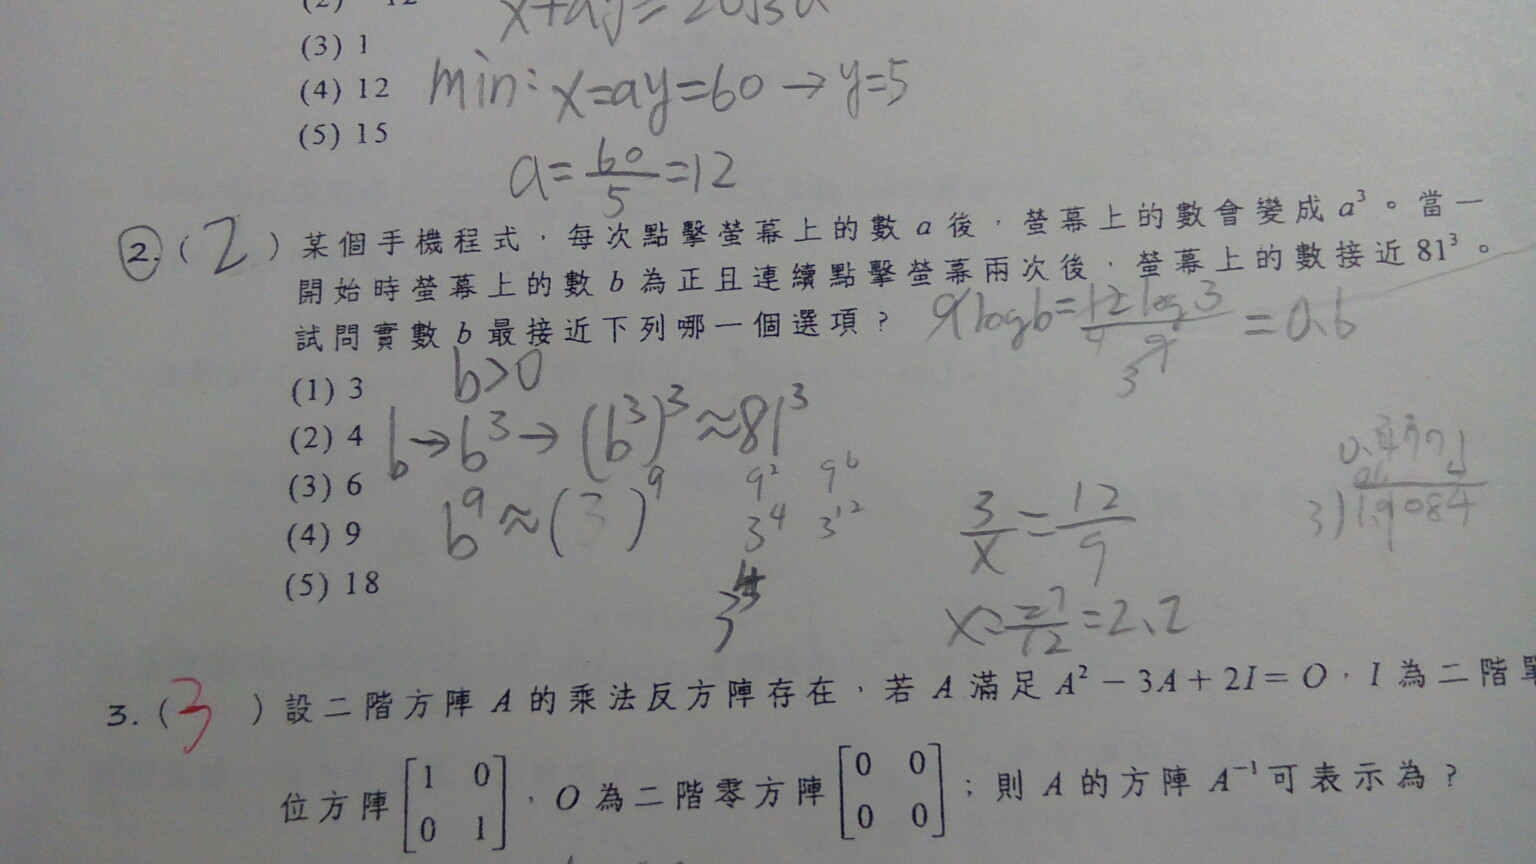 x+ay=
(3) 1
(4) 12
min: x=ay=60 → y=5
(5) 15
a=60/5=12
2. ( 2 ) 某個手機程式，每次點擊螢幕上的數 a 後，螢幕上的數會變成 a³。當一
開始時螢幕上的數 b 為正且連續點擊螢幕兩次後，螢幕上的數接近 81³。
試問實數 b 最接近下列哪一個選項？
9logb=12log3/9=0.6
(1) 3
b>0
(2) 4
b→b³→(b³)³≈81³
(3) 6
9² 9⁶
b⁹≈(3 )⁹
3⁴ 3¹²
3/x=12/9
3)1.9084
(4) 9
(5) 18
x=27/12=2.2
3. ( 3 ) 設二階方陣 A 的乘法反方陣存在，若 A 滿足 A²－3A＋2I＝O，I 為二階單
位方陣[1 0
0 1]，O 為二階零方陣[0 0
0 0]；則 A 的方陣 A⁻¹可表示為？